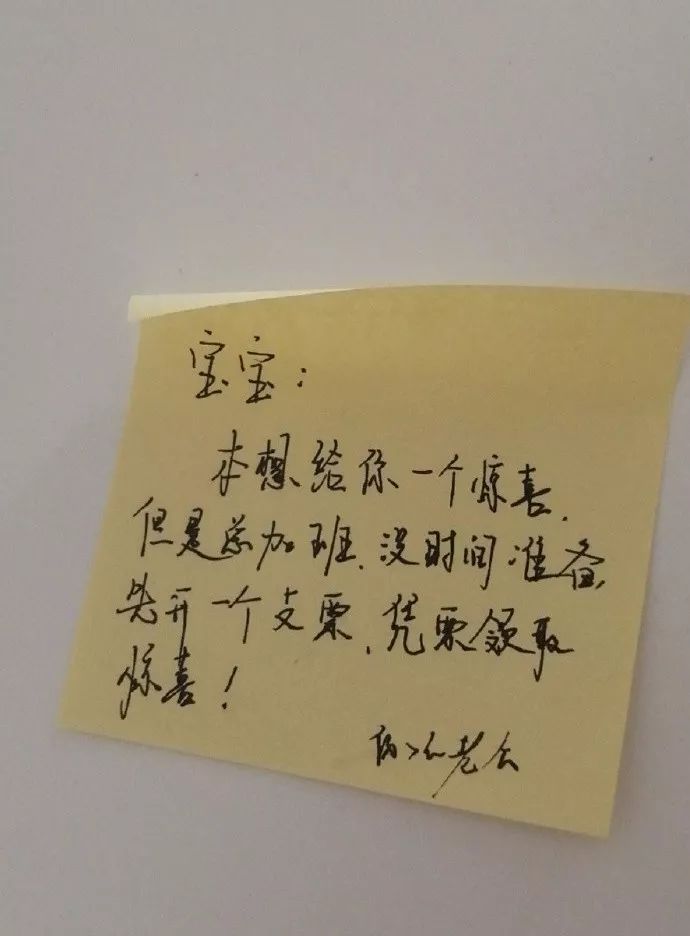 宝宝：
本想给你一个惊喜，
但是总加班，没时间准备，
先开一个支票，凭票领取
惊喜！
老公